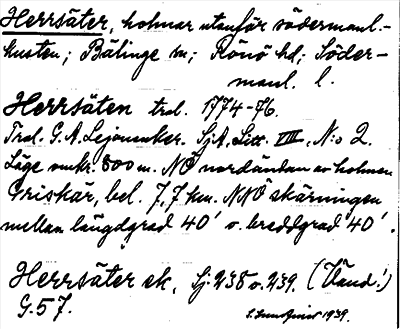 Herrsäter, holmar utanför södermanl.-
kusten; Bälinge sn; Rönö hd; Söder-
manl. l.
Herrsäten trol. 1774-76.
Trol. G.A. Lejonanker. SjA. Litt. VIII. N:o 2.
Läge omkr. 800 m. NO nordändan av holmen
Griskär, bel. 7,7 km. NNO skärningen
mellan längdgrad 40' o. breddgrad 40'.
Herrsäter sk. Sj. 238 o. 239. (Vänd!)
G. 57.
1939.